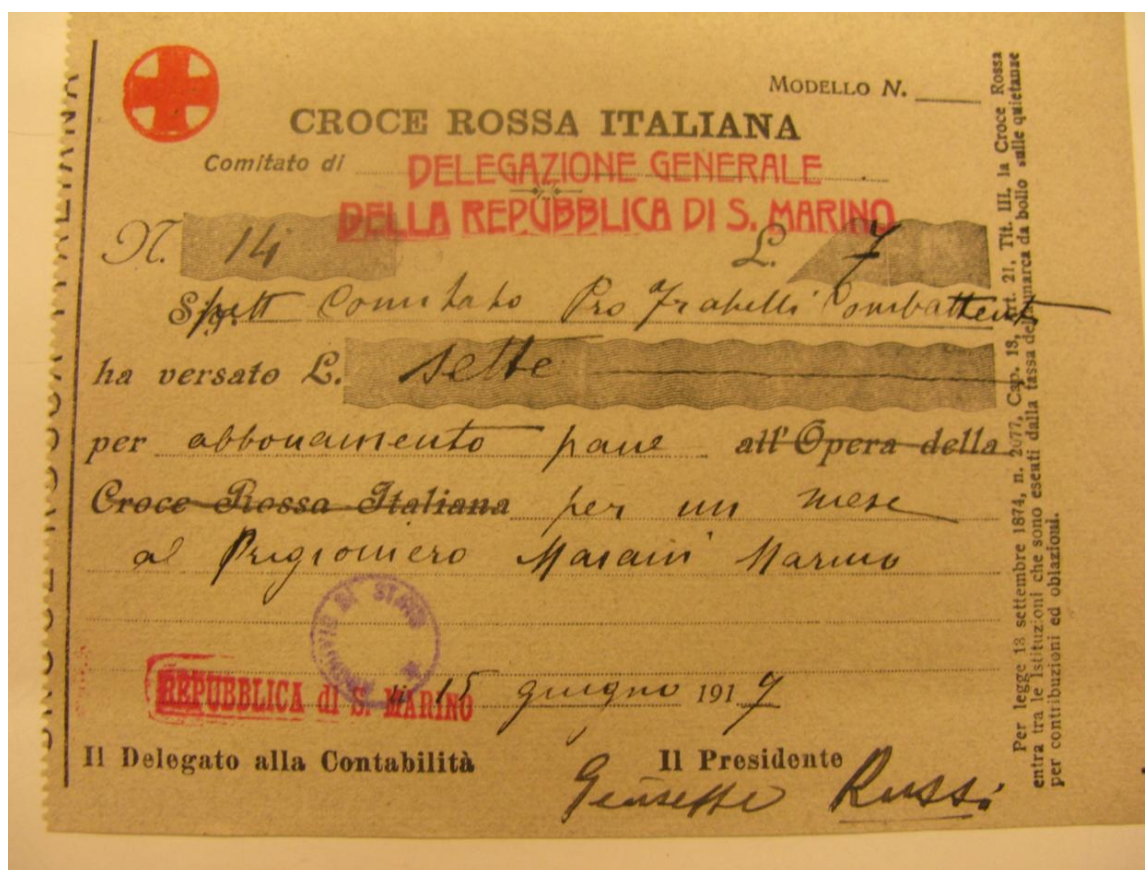 MODELLO N.
CROCE ROSSA ITALIANA
Comitato di DELEGAZIONE GENERALE
DELLA REPUBBLICA DI S. MARINO
N. 14 L. 7
Spett Comitato Pro Fratelli Combattenti
ha versato L. sette
per abbonamento pane all'Opera della
Croce Rossa Italiana per un mese
al Prigioniero Marino
ARCHIVIO DI STATO
REPUBBLICA di S. MARINO li 15 giugno 1917
Il Delegato alla Contabilità Il Presidente
Giuseppe Russi
Per legge 18 settembre 1874, n. 2077, Cap. 18, Art. 21, Tit. III, la Croce Rossa
entra tra le Istituzioni che sono esenti dalla tassa della marca da bollo sulle quietanze
per contribuzioni ed oblazioni.